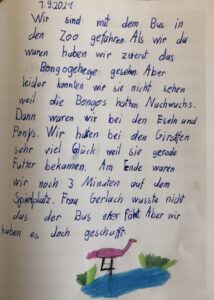 7.9.2021
Wir sind mit dem Bus in
den Zoo gefahren. Als wir da
waren haben wir zuerst das
Bongogehege gesehn. Aber
leider konnten wir sie nicht sehen
weil die Bongos hatten Nachwuchs.
Dann waren wir bei den Eseln und
Ponys. Wir hatten bei den Giraffen
sehr viel Glück weil sie gerade
Futter bekamen. Am Ende waren
wir noch 3 Minuten auf dem
Spielplatz. Frau Gerlach wusste nicht
das der Bus eher fährt. Aber wir
haben es doch geschafft.